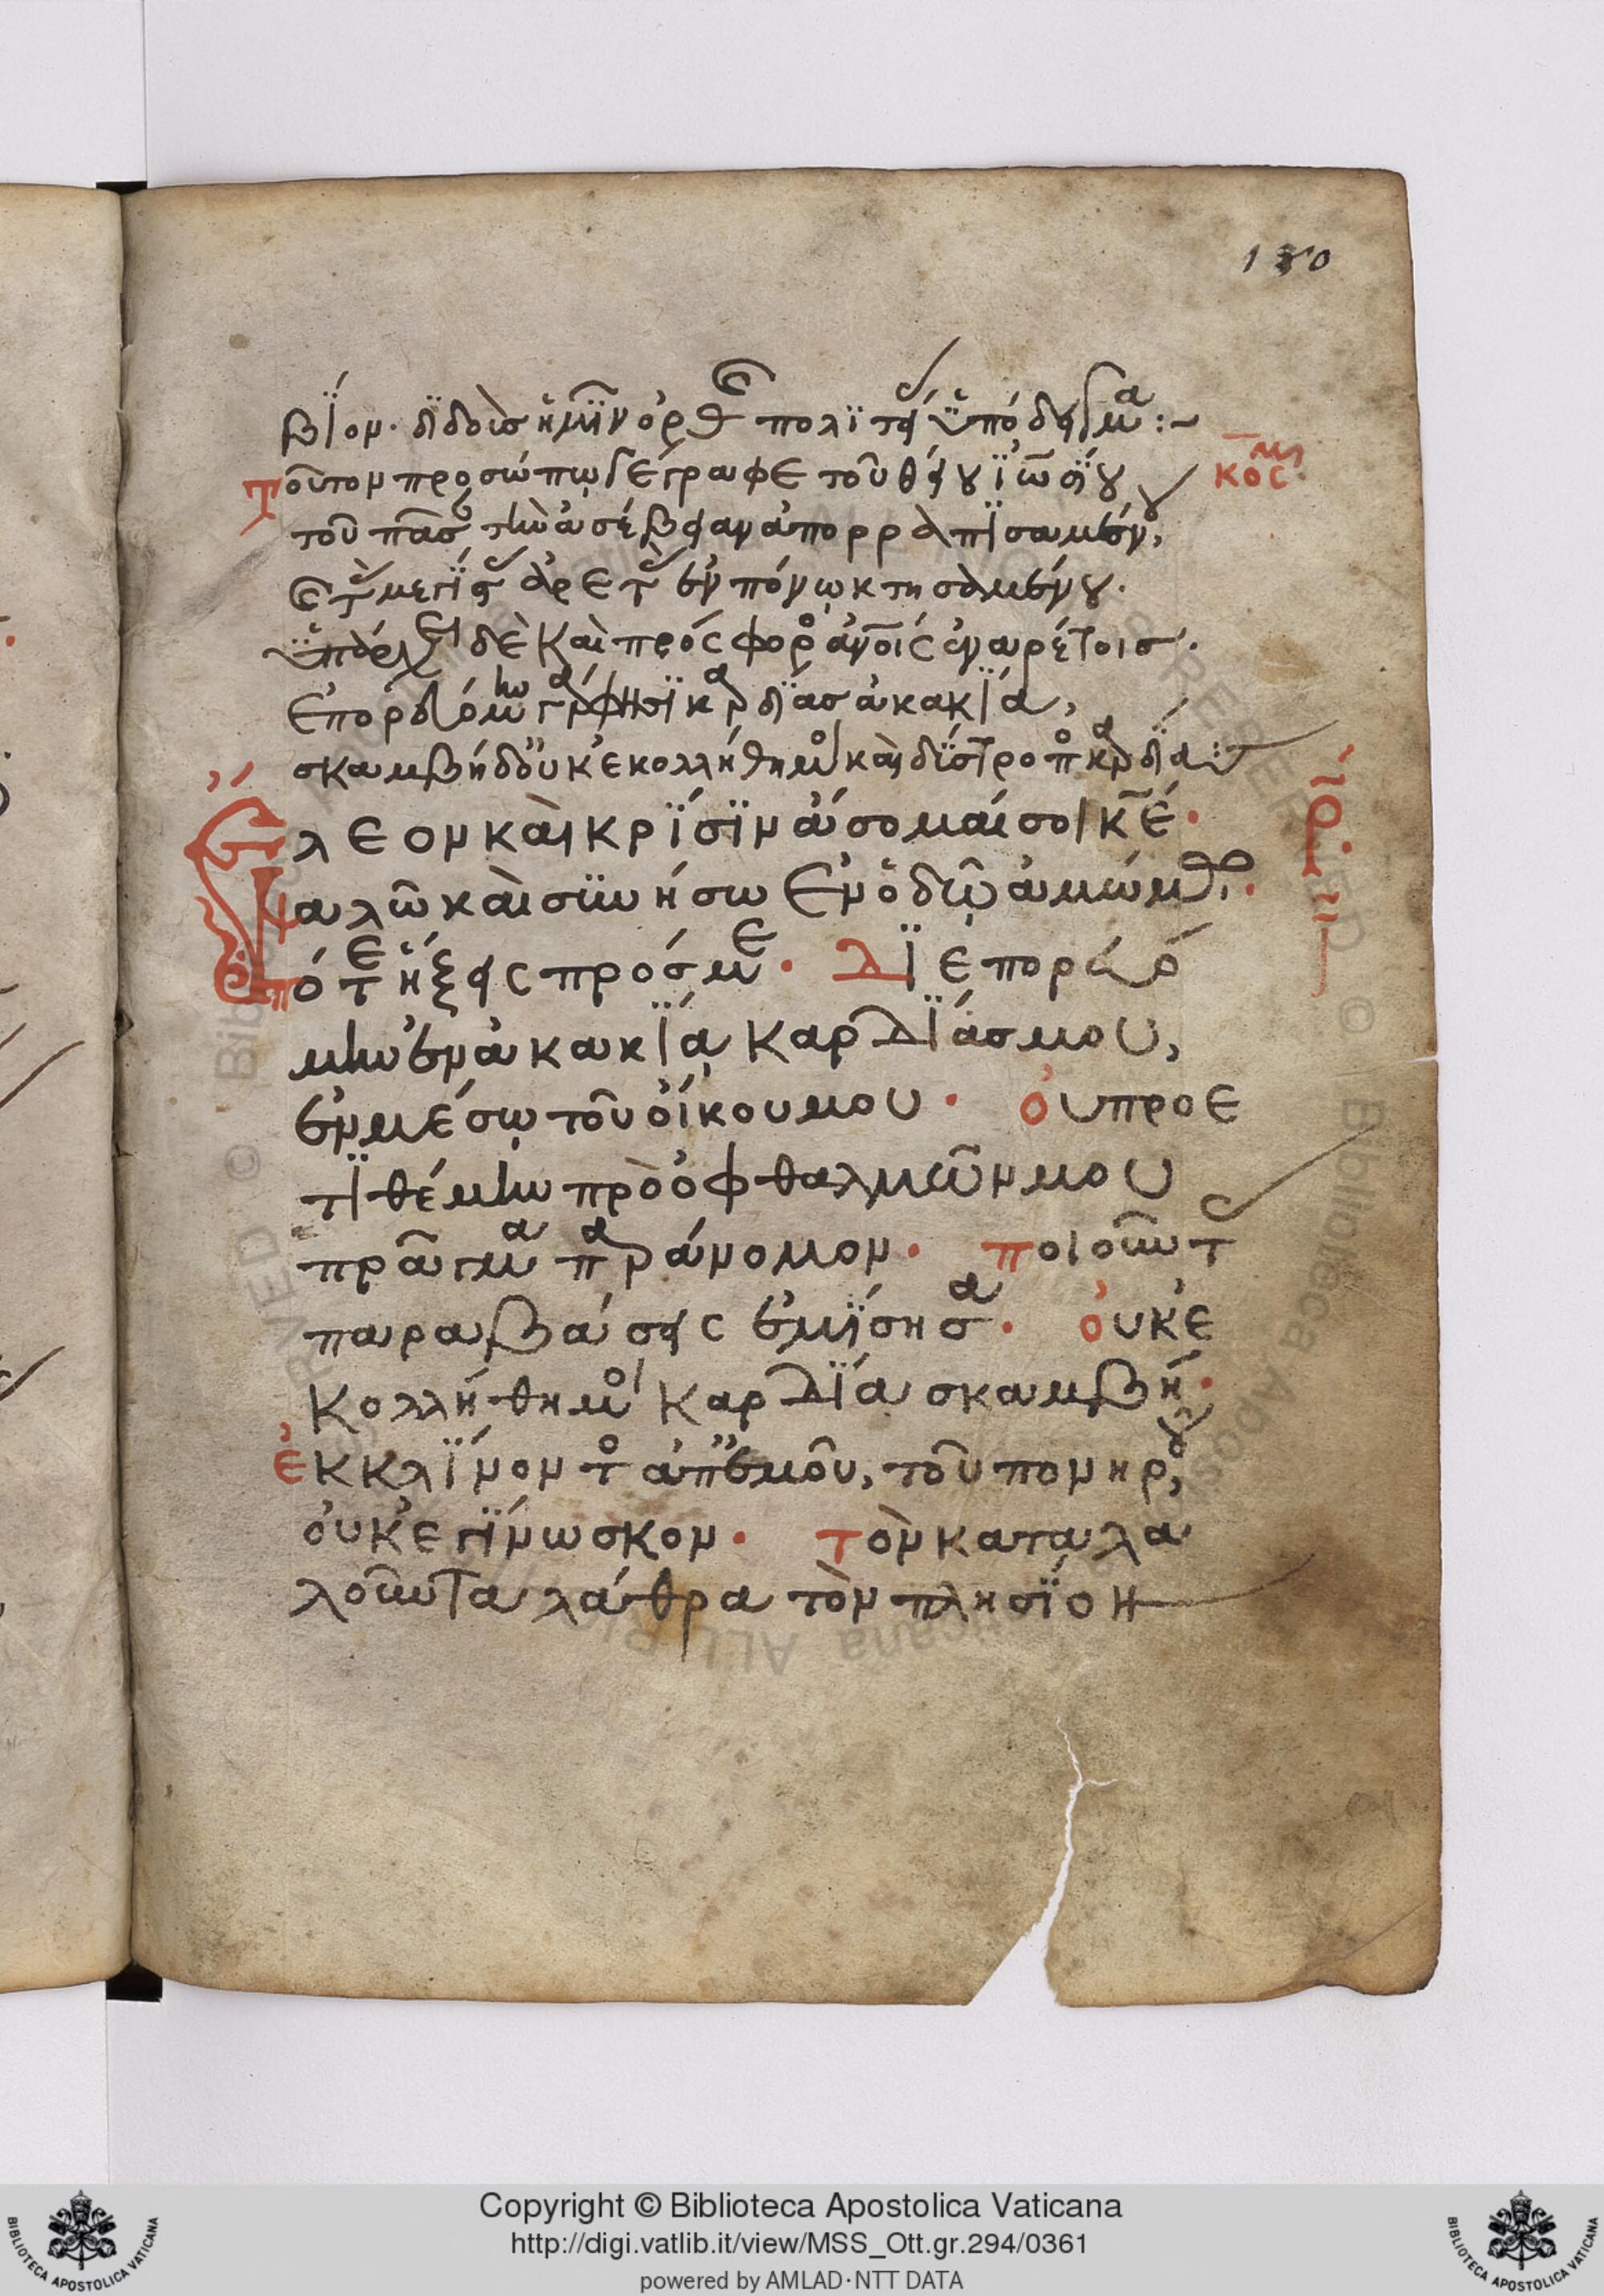 180
βίον· διδοὺς ἡμῖν ὀρθῆς πολιτείας ὑπόδειγμα :~
Τοῦτον προσώπω γέγραφε τοῦ θείου ἰωσίου
κος
τοῦ πᾶσαν τὴν ἀσέβειαν ἀπορραπισαμένου,
ἐν πόνω κτησαμένου.
ὑπάρχει δὲ καὶ πρόσφορος ἀνοῖς ἐναρέτοις·
Ἐπορευόμην γάρ φησι καρδίας ἀκακία,
σκαμβὴ δ' οὐκ ἐκολλήθη μοι καὶ διάστροπος καρδία:~
Ἔλεον καὶ κρίσιν ἄσομαί σοι κέ·
ψαλῶ καὶ συνήσω ἐν ὁδῶ ἀμώμω·
πότε ἥξεις πρός με· Διεπορευό
μην ἐν ἀκακία καρδίας μου,
ἐν μέσω τοῦ οἴκου μου· οὐ προε
τιθέμην πρὸ ὀφθαλμῶν μου
πρᾶγμα παράνομον· ποιοῦντας
παραβάσεις ἐμίσησα· οὐκ ἐ
κολλήθη μοι καρδία σκαμβή·
ἐκκλίνοντος ἀπ' ἐμοῦ, τοῦ πονηροῦ,
οὐκ ἐγίνωσκον· τὸν καταλα
λοῦντα λάθρα τὸν πλησίον
Copyright © Biblioteca Apostolica Vaticana
http://digi.vatlib.it/view/MSS_Ott.gr.294/0361
powered by AMLAD·NTT DATA
BIBLIOTECA APOSTOLICA VATICANA
BIBLIOTECA APOSTOLICA VATICANA